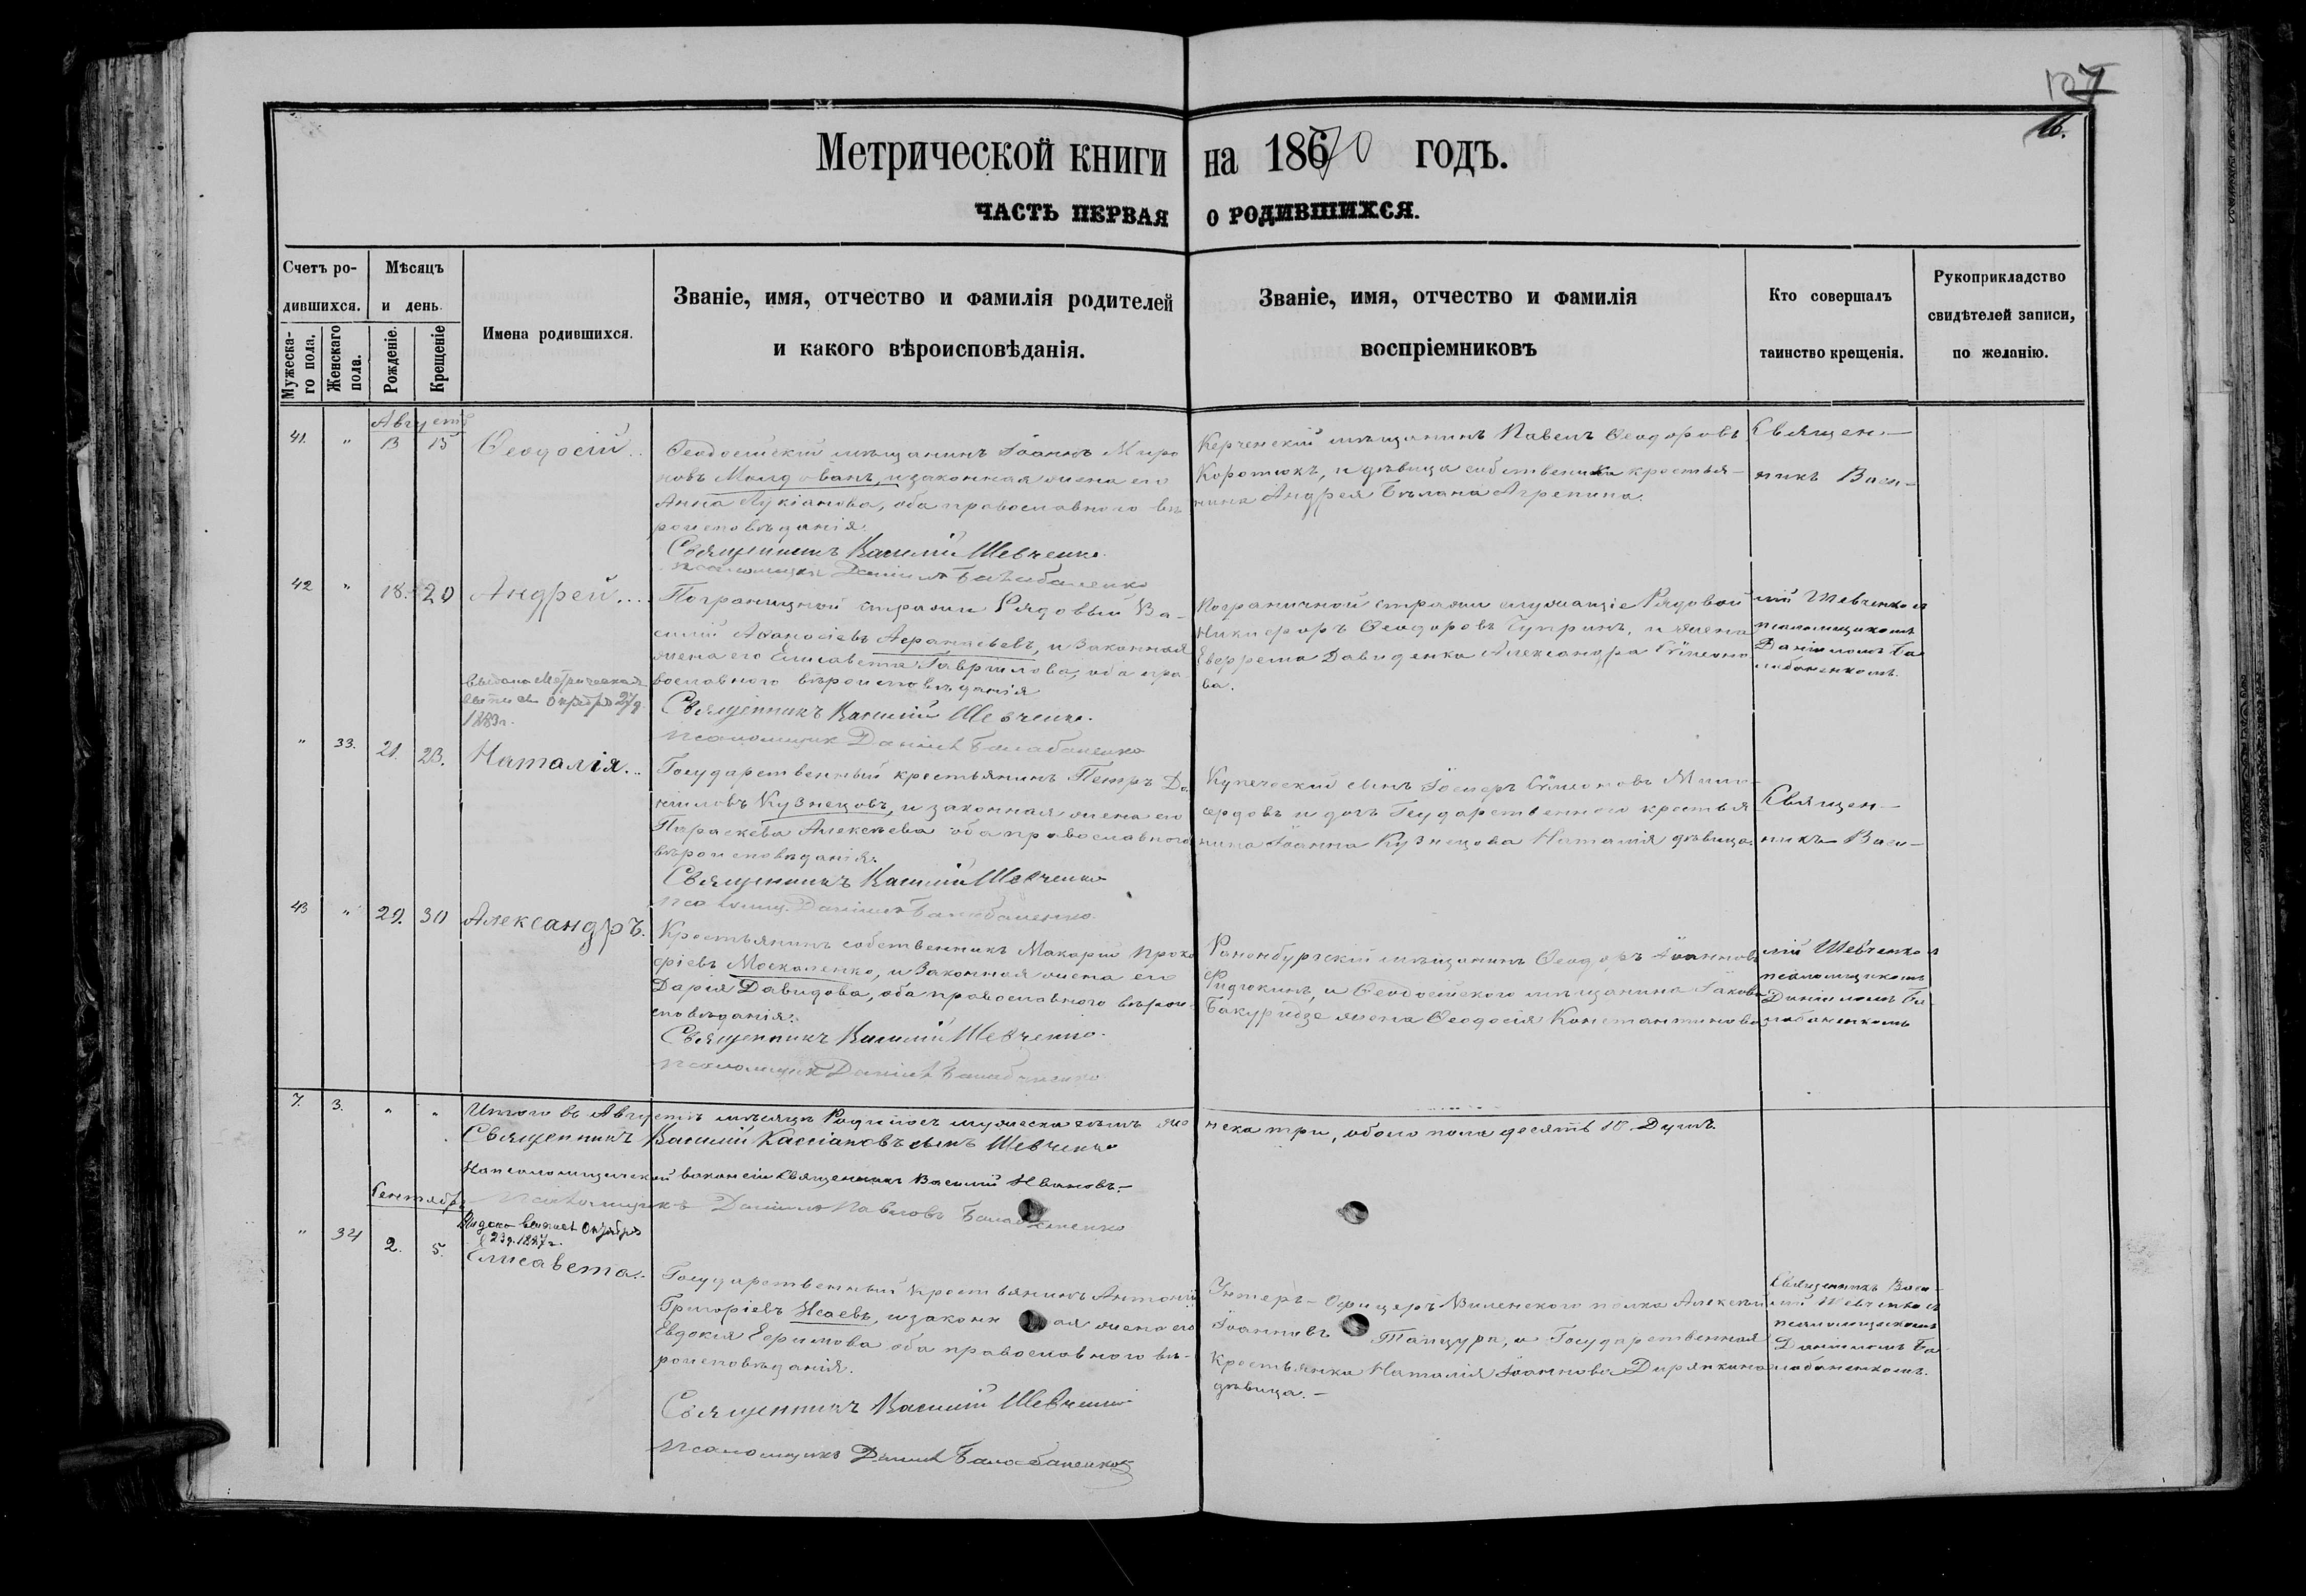 107
16.
Метрической книги на 1870 годъ.
ЧАСТЬ ПЕРВАЯ О РОДИВШИХСЯ.
Счетъ ро-
дившихся.
Мужеска-
го пола.
Женскаго
пола.
Мѣсяцъ
и день.
Рожденіе.
Крещеніе
Имена родившихся.
Званіе, имя, отчество и фамилія родителей
и какого вѣроисповѣданія.
Званіе, имя, отчество и фамилія
воспріемниковъ
Кто совершалъ
таинство крещенія.
Рукоприкладство
свидѣтелей записи,
по желанію.
Августъ
41. " 13 15 Ѳеодосій..
Ѳеодосійскій мѣщанинъ Іоаннъ Миро
новъ Молдованъ, и законная жена его
Анна Лукіанова, оба православного вѣ
роисповѣданія.
Священникъ Василій Шевченко.
Псаломщикъ Даніилъ Балабаненко
Керченскій мѣщанинъ Павелъ Ѳеодоровъ
Коротюкъ, и дѣвица собственика крестья-
нина Андрея Бѣлана Агрепина.
Священ-
никъ Васи-
42 " 18. 20 Андрей...
Пограничной стражи Рядовый Ва-
силій Аѳанасіевъ Аѳанасьевъ, и законная
жена его Елисавета Гаврилова, оба пра-
вославного вѣроисповѣданія
Священникъ Василій Шевченко.
Псаломщик Даніилъ Балабаненко
выдана Метрическая
выпись Октября 27 д.
1889 г.
Пограничной стражи служащіе Рядовой
Никифоръ Ѳеодоровъ Чупринъ, и жена
Евфрема Давиденка Александра Сѵмеоно
ва.
лій Шевченко съ
псаломщикомъ
Даніиломъ Ба
лабаненкомъ.
" 33. 21. 23. Наталія..
Государственный крестьянинъ Петръ Да
ниловъ Кузнецовъ, и законная жена его
Параскева Алексѣева оба православного
вѣроисповѣданія.
Священникъ Василій Шевченко
Псаломщ. Даніилъ Балабаненко.
Купеческій сынъ Іосифъ Сѵмеоновъ Мили-
сердовъ и дочь Государственного крестья
нина Іоанна Кузнецова Наталія дѣвица.
Священ-
никъ Васи-
43 " 29. 30 Александръ.
Крестьянинъ собственникъ Макарій Проко
фіевъ Москаленко, и законная жена его
Дарія Давидова, оба православного вѣрои-
сповѣданія.
Священникъ Василій Шевченко.
Псаломщик Даніилъ Балабаненко
Раненбургскій мѣщанинъ Ѳеодоръ Іоанновъ
и Ѳеодосійского мѣщанина Іакова
Бакуридзе жена Ѳеодосія Константинова
лій Шевченко съ
псаломщикомъ
Даніиломъ Ба-
лабаненкомъ
7. 3. " " Итого въ Августѣ мѣсяцѣ Родилось мужеска семь же нска три, обоего пола десять 10. Душъ.
Священникъ Василій Кассіановъ сынъ Шевченко
На псаломщической вакансіи Священникъ Василій Ивановъ.-
Псаломщикъ Даніилъ Павловъ Балабаненко
Сентябрь
Видано выпись Октября
23 д. 1887 г.
" 34 2. 5. Елисавета..
Государственный крестьянинъ Антоній
Григоріевъ Исаевъ, и законная жена его
Евдокія Ефимова оба православного вѣ-
роисповѣданія.
Священникъ Василій Шевченко
Псаломщикъ Даніилъ Балабаненко
Унтеръ-Офицеръ Виленского полка Алексѣй
Іоанновъ Танцура, и Государственная
Крестьянка Наталія Іоаннова Дирянкина
дѣвица.-
Священникъ Васи-
лій Шевченко съ
псаломщикомъ
Даніиломъ Ба-
лабаненкомъ.